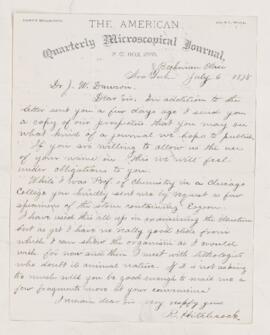 THE AMERICAN
Quarterly Microscopical Journal,
P. O. BOX
New York July 6 1878
Dr. J. W. Dawson.
Dear Sir. In addition to the
letter sent you a few days ago I send you
a copy of our prospectus that you may see
what kind of a journal we hope to publish
If you are willing to allow us the use
of your name in this we will feel
under obligations to you.
While I was Prof. of Chemistry in a Chicago
College you kindly sent me by request a few
specimens of the stone containing Eozoon.
I have used this all up in examining the structure
but as yet I have no really good slide from
which I can show the organism as I would
wish for now and then I meet with
who doubt its animal nature. If it is not asking
too much will you be good enough to mail me a
few fragments more at your convenience
I remain dear sir very resp'y yours
R. Hitchcock